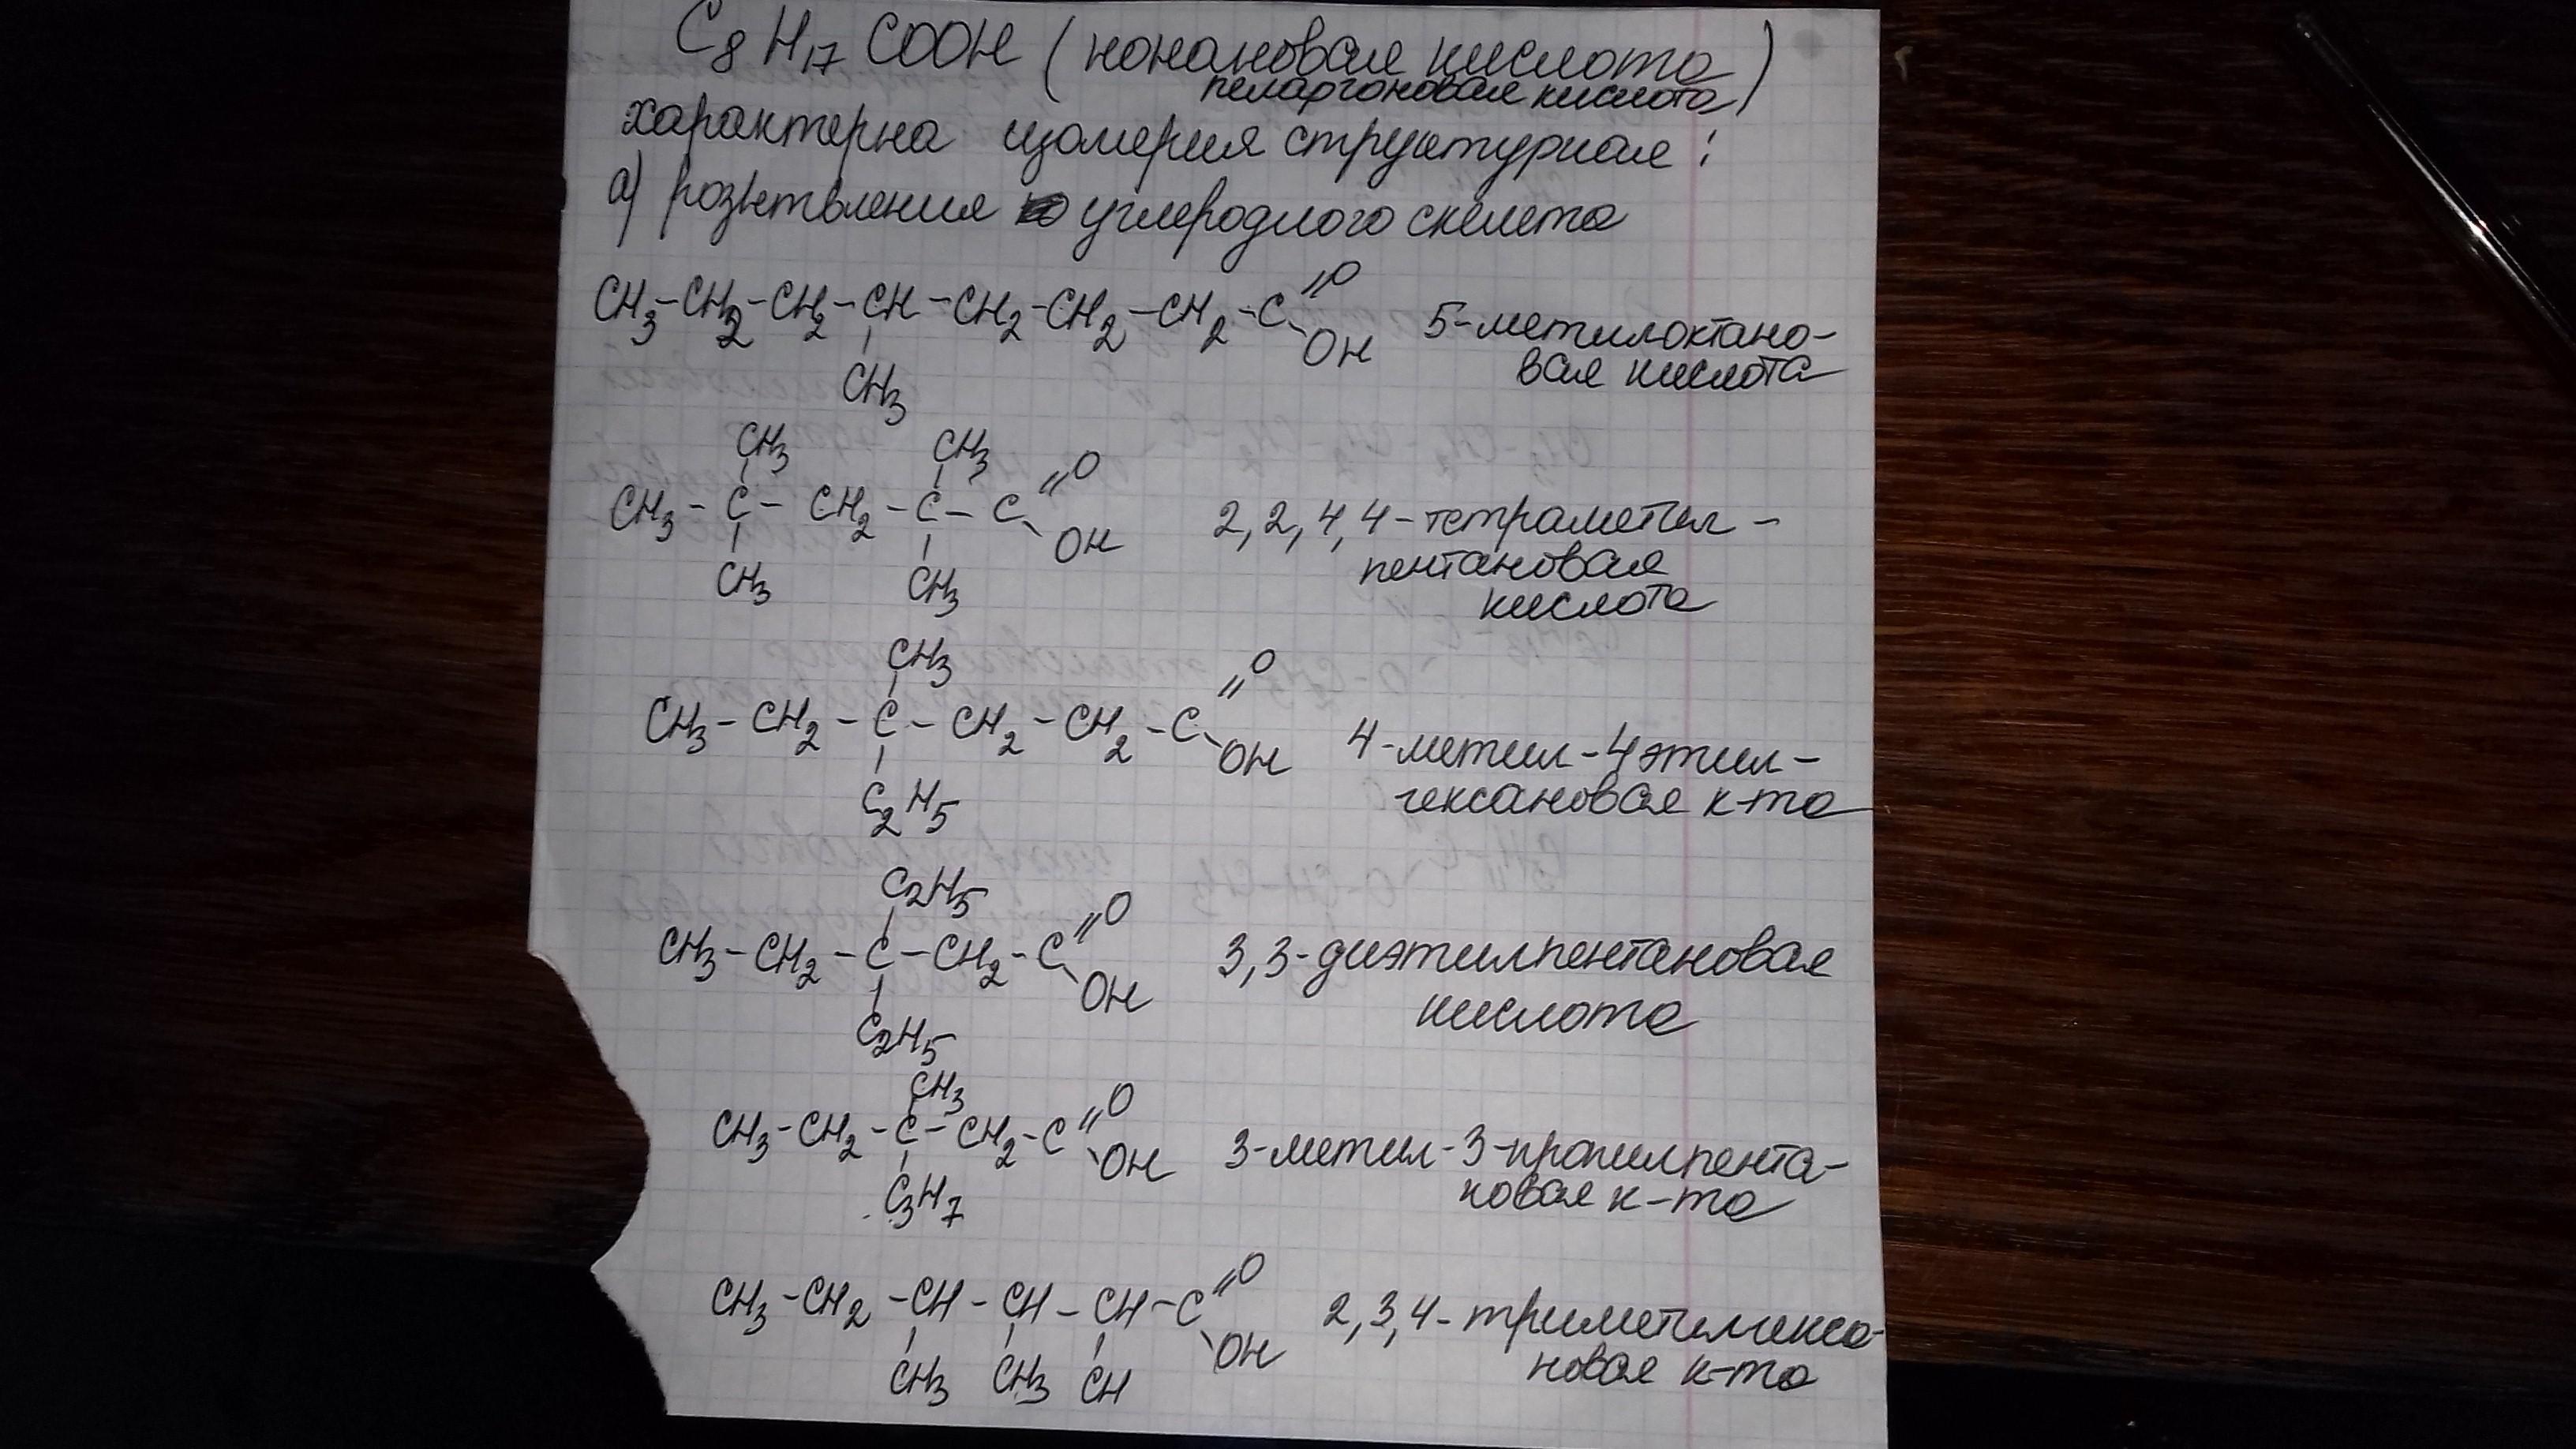 C8H17COOH (нонановая кислота
пеларгоновая кислота)
характерна изомерия структурная:
а) розвтвления углеродного скелета
CH3-CH2-CH2-CH-CH2-CH2-CH2-C=O
OH
CH3
5-метилоктано-
вая кислота
CH3 CH3
CH3-C-CH2-C-C=O
OH
CH3 CH3
2,2,4,4-тетраметил-
пентановая
кислота
CH3
CH3-CH2-C-CH2-CH2-C=O
OH
C2H5
4-метил-4этил-
гексановая к-та
C2H5
CH3-CH2-C-CH2-C=O
OH
C2H5
3,3-диэтилпентановая
кислота
CH3
CH3-CH2-C-CH2-C=O
OH
C3H7
3-метил-3-пропилпента-
новая к-та
CH3-CH2-CH-CH-CH-C=O
OH
CH3 CH3 CH
2,3,4-триметилгекса-
новая к-та